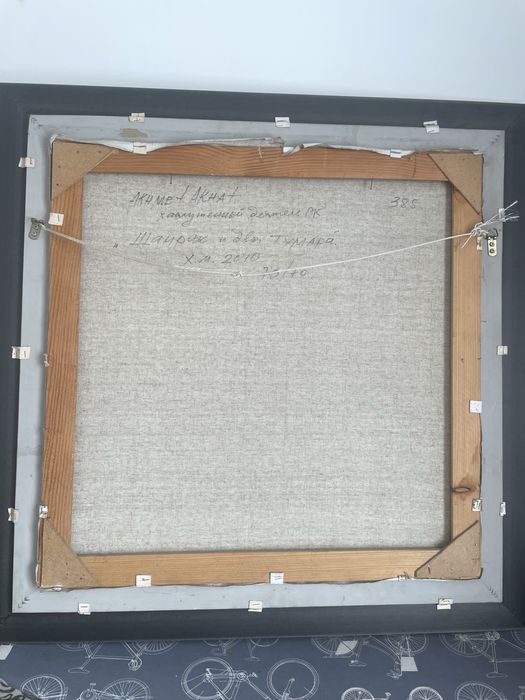 Ахмет Ахат 385
заслуженный деятель РК
„Шанырак и два тумара"
х.м. 2010
70x70.